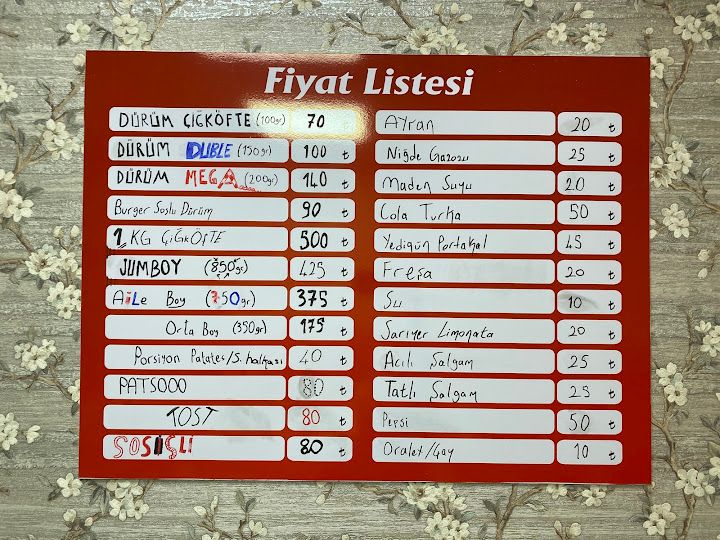 Fiyat Listesi
DÜRÜM ÇİĞKÖFTE (100gr) 70
DÜRÜM DUBLE (150gr) 100 ₺
DÜRÜM MEGA (200gr) 140 ₺
Burger Soslu Dürüm 90 ₺
1 KG ÇİĞKÖFTE 500 ₺
JUMBOY (850gr) 425 ₺
AiLe Boy (750gr) 375 ₺
Orta Boy (350gr) 175 ₺
Porsiyon Patates/S. halkası 40 ₺
PATSOOO 80 ₺
TOST 80 ₺
SOSİSLİ 80 ₺
Ayran 20 ₺
Niğde Gazozu 25 ₺
Maden Suyu 20 ₺
Cola Turka 50 ₺
Yedigün Portakal 45 ₺
Freşa 20 ₺
Su 10 ₺
Sarıyer Limonata 20 ₺
Acılı Şalgam 25 ₺
Tatlı Şalgam 25 ₺
Pepsi 50 ₺
Oralet/Çay 10 ₺